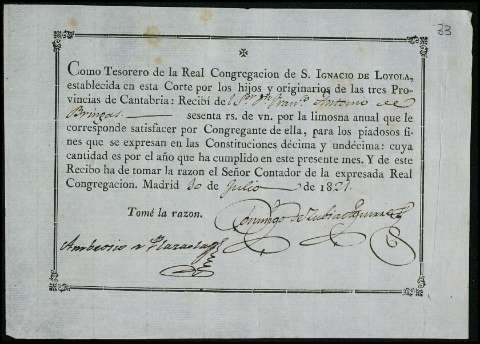 33
✠
Como Tesorero de la Real Congregacion de S. IGNACIO DE LOYOLA,
establecida en esta Corte por los hijos y originarios de las tres Pro-
vincias de Cantabria: Recibí del Sr. Dn. Franco. Antonio de
Bringas sesenta rs. de vn. por la limosna anual que le
corresponde satisfacer por Congregante de ella, para los piadosos fi-
nes que se expresan en las Constituciones décima y undécima: cuya
cantidad es por el año que ha cumplido en este presente mes. Y de este
Recibo ha de tomar la razon el Señor Contador de la expresada Real
Congregacion. Madrid 30 de Julio de 1821.
Tomé la razon.
Domingo de
Ambrosio